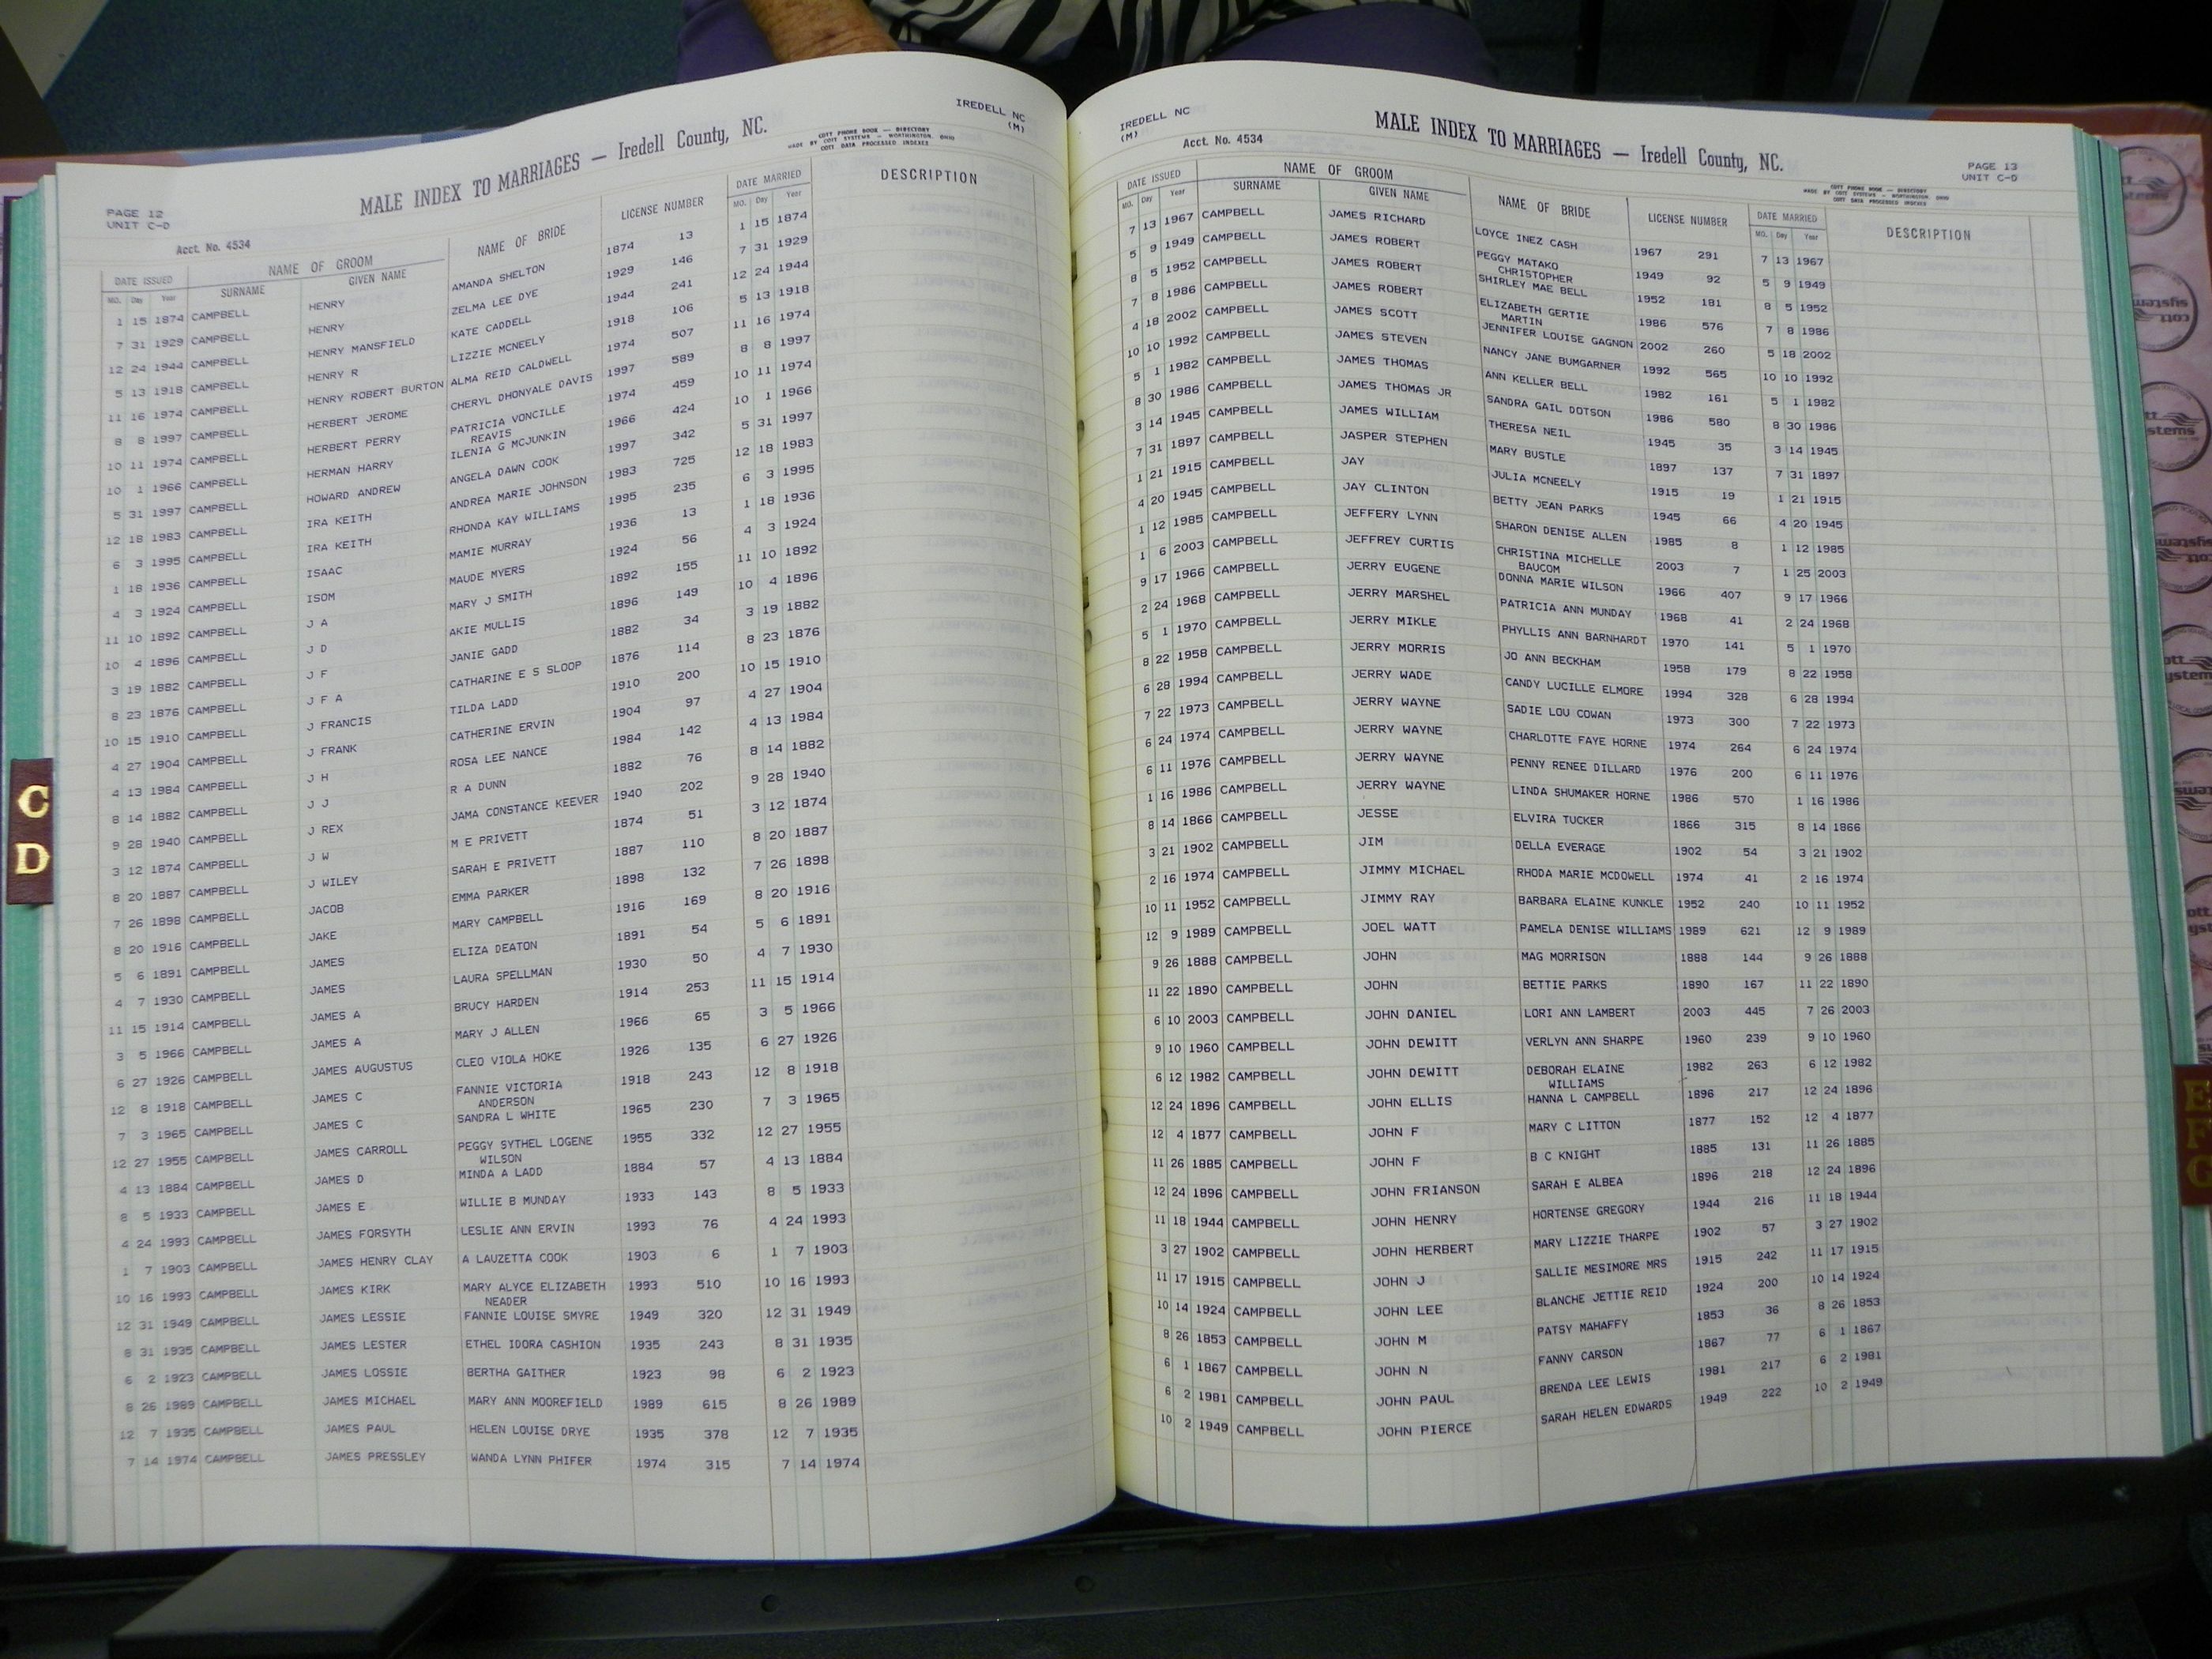 IREDELL NC
(M)
MALE INDEX TO MARRIAGES — Iredell County, NC.
COTT PHONE BOOK — DIRECTORY
MADE BY COTT SYSTEMS — WORTHINGTON, OHIO
COTT DATA PROCESSED INDEXES
PAGE 12
UNIT C-D
Acct. No. 4534
DATE ISSUED NAME OF GROOM NAME OF BRIDE LICENSE NUMBER DATE MARRIED DESCRIPTION
MO. Day Year SURNAME GIVEN NAME MO. Day Year
1 15 1874 CAMPBELL HENRY AMANDA SHELTON 1874 13 1 15 1874
7 31 1929 CAMPBELL HENRY ZELMA LEE DYE 1929 146 7 31 1929
12 24 1944 CAMPBELL HENRY MANSFIELD KATE CADDELL 1944 241 12 24 1944
5 13 1918 CAMPBELL HENRY R LIZZIE MCNEELY 1918 106 5 13 1918
11 16 1974 CAMPBELL HENRY ROBERT BURTON ALMA REID CALDWELL 1974 507 11 16 1974
8 8 1997 CAMPBELL HERBERT JEROME CHERYL DHONYALE DAVIS 1997 589 8 8 1997
10 11 1974 CAMPBELL HERBERT PERRY PATRICIA VONCILLE 1974 459 10 11 1974
REAVIS
10 1 1966 CAMPBELL HERMAN HARRY ILENIA G MCJUNKIN 1966 424 10 1 1966
5 31 1997 CAMPBELL HOWARD ANDREW ANGELA DAWN COOK 1997 342 5 31 1997
12 18 1983 CAMPBELL IRA KEITH ANDREA MARIE JOHNSON 1983 725 12 18 1983
6 3 1995 CAMPBELL IRA KEITH RHONDA KAY WILLIAMS 1995 235 6 3 1995
1 18 1936 CAMPBELL ISAAC MAMIE MURRAY 1936 13 1 18 1936
4 3 1924 CAMPBELL ISOM MAUDE MYERS 1924 56 4 3 1924
11 10 1892 CAMPBELL J A MARY J SMITH 1892 155 11 10 1892
10 4 1896 CAMPBELL J D AKIE MULLIS 1896 149 10 4 1896
3 19 1882 CAMPBELL J F JANIE GADD 1882 34 3 19 1882
8 23 1876 CAMPBELL J F A CATHARINE E S SLOOP 1876 114 8 23 1876
10 15 1910 CAMPBELL J FRANCIS TILDA LADD 1910 200 10 15 1910
4 27 1904 CAMPBELL J FRANK CATHERINE ERVIN 1904 97 4 27 1904
4 13 1984 CAMPBELL J H ROSA LEE NANCE 1984 142 4 13 1984
8 14 1882 CAMPBELL J J R A DUNN 1882 76 8 14 1882
9 28 1940 CAMPBELL J REX JAMA CONSTANCE KEEVER 1940 202 9 28 1940
3 12 1874 CAMPBELL J W M E PRIVETT 1874 51 3 12 1874
8 20 1887 CAMPBELL J WILEY SARAH E PRIVETT 1887 110 8 20 1887
7 26 1898 CAMPBELL JACOB EMMA PARKER 1898 132 7 26 1898
8 20 1916 CAMPBELL JAKE MARY CAMPBELL 1916 169 8 20 1916
5 6 1891 CAMPBELL JAMES ELIZA DEATON 1891 54 5 6 1891
4 7 1930 CAMPBELL JAMES LAURA SPELLMAN 1930 50 4 7 1930
11 15 1914 CAMPBELL JAMES A BRUCY HARDEN 1914 253 11 15 1914
3 5 1966 CAMPBELL JAMES A MARY J ALLEN 1966 65 3 5 1966
6 27 1926 CAMPBELL JAMES AUGUSTUS CLEO VIOLA HOKE 1926 135 6 27 1926
12 8 1918 CAMPBELL JAMES C FANNIE VICTORIA 1918 243 12 8 1918
ANDERSON
7 3 1965 CAMPBELL JAMES C SANDRA L WHITE 1965 230 7 3 1965
12 27 1955 CAMPBELL JAMES CARROLL PEGGY SYTHEL LOGENE 1955 332 12 27 1955
WILSON
4 13 1884 CAMPBELL JAMES D MINDA A LADD 1884 57 4 13 1884
8 5 1933 CAMPBELL JAMES E WILLIE B MUNDAY 1933 143 8 5 1933
4 24 1993 CAMPBELL JAMES FORSYTH LESLIE ANN ERVIN 1993 76 4 24 1993
1 7 1903 CAMPBELL JAMES HENRY CLAY A LAUZETTA COOK 1903 6 1 7 1903
10 16 1993 CAMPBELL JAMES KIRK MARY ALYCE ELIZABETH 1993 510 10 16 1993
NEADER
12 31 1949 CAMPBELL JAMES LESSIE FANNIE LOUISE SMYRE 1949 320 12 31 1949
8 31 1935 CAMPBELL JAMES LESTER ETHEL IDORA CASHION 1935 243 8 31 1935
6 2 1923 CAMPBELL JAMES LOSSIE BERTHA GAITHER 1923 98 6 2 1923
8 26 1989 CAMPBELL JAMES MICHAEL MARY ANN MOOREFIELD 1989 615 8 26 1989
12 7 1935 CAMPBELL JAMES PAUL HELEN LOUISE DRYE 1935 378 12 7 1935
7 14 1974 CAMPBELL JAMES PRESSLEY WANDA LYNN PHIFER 1974 315 7 14 1974
C
D
IREDELL NC
(M)
Acct. No. 4534
MALE INDEX TO MARRIAGES — Iredell County, NC.
COTT PHONE BOOK — DIRECTORY
MADE BY COTT SYSTEMS — WORTHINGTON, OHIO
COTT DATA PROCESSED INDEXES
PAGE 13
UNIT C-D
DATE ISSUED NAME OF GROOM NAME OF BRIDE LICENSE NUMBER DATE MARRIED DESCRIPTION
MO. Day Year SURNAME GIVEN NAME MO. Day Year
7 13 1967 CAMPBELL JAMES RICHARD LOYCE INEZ CASH 1967 291 7 13 1967
5 9 1949 CAMPBELL JAMES ROBERT PEGGY MATAKO 1949 92 5 9 1949
CHRISTOPHER
8 5 1952 CAMPBELL JAMES ROBERT SHIRLEY MAE BELL 1952 181 8 5 1952
7 8 1986 CAMPBELL JAMES ROBERT ELIZABETH GERTIE 1986 576 7 8 1986
MARTIN
4 18 2002 CAMPBELL JAMES SCOTT JENNIFER LOUISE GAGNON 2002 260 5 18 2002
10 10 1992 CAMPBELL JAMES STEVEN NANCY JANE BUMGARNER 1992 565 10 10 1992
5 1 1982 CAMPBELL JAMES THOMAS ANN KELLER BELL 1982 161 5 1 1982
8 30 1986 CAMPBELL JAMES THOMAS JR SANDRA GAIL DOTSON 1986 580 8 30 1986
3 14 1945 CAMPBELL JAMES WILLIAM THERESA NEIL 1945 35 3 14 1945
7 31 1897 CAMPBELL JASPER STEPHEN MARY BUSTLE 1897 137 7 31 1897
1 21 1915 CAMPBELL JAY JULIA MCNEELY 1915 19 1 21 1915
4 20 1945 CAMPBELL JAY CLINTON BETTY JEAN PARKS 1945 66 4 20 1945
1 12 1985 CAMPBELL JEFFERY LYNN SHARON DENISE ALLEN 1985 8 1 12 1985
1 6 2003 CAMPBELL JEFFREY CURTIS CHRISTINA MICHELLE 2003 7 1 25 2003
BAUCOM
9 17 1966 CAMPBELL JERRY EUGENE DONNA MARIE WILSON 1966 407 9 17 1966
2 24 1968 CAMPBELL JERRY MARSHEL PATRICIA ANN MUNDAY 1968 41 2 24 1968
5 1 1970 CAMPBELL JERRY MIKLE PHYLLIS ANN BARNHARDT 1970 141 5 1 1970
8 22 1958 CAMPBELL JERRY MORRIS JO ANN BECKHAM 1958 179 8 22 1958
6 28 1994 CAMPBELL JERRY WADE CANDY LUCILLE ELMORE 1994 328 6 28 1994
7 22 1973 CAMPBELL JERRY WAYNE SADIE LOU COWAN 1973 300 7 22 1973
6 24 1974 CAMPBELL JERRY WAYNE CHARLOTTE FAYE HORNE 1974 264 6 24 1974
6 11 1976 CAMPBELL JERRY WAYNE PENNY RENEE DILLARD 1976 200 6 11 1976
1 16 1986 CAMPBELL JERRY WAYNE LINDA SHUMAKER HORNE 1986 570 1 16 1986
8 14 1866 CAMPBELL JESSE ELVIRA TUCKER 1866 315 8 14 1866
3 21 1902 CAMPBELL JIM DELLA EVERAGE 1902 54 3 21 1902
2 16 1974 CAMPBELL JIMMY MICHAEL RHODA MARIE MCDOWELL 1974 41 2 16 1974
10 11 1952 CAMPBELL JIMMY RAY BARBARA ELAINE KUNKLE 1952 240 10 11 1952
12 9 1989 CAMPBELL JOEL WATT PAMELA DENISE WILLIAMS 1989 621 12 9 1989
9 26 1888 CAMPBELL JOHN MAG MORRISON 1888 144 9 26 1888
11 22 1890 CAMPBELL JOHN BETTIE PARKS 1890 167 11 22 1890
6 10 2003 CAMPBELL JOHN DANIEL LORI ANN LAMBERT 2003 445 7 26 2003
9 10 1960 CAMPBELL JOHN DEWITT VERLYN ANN SHARPE 1960 239 9 10 1960
6 12 1982 CAMPBELL JOHN DEWITT DEBORAH ELAINE 1982 263 6 12 1982
WILLIAMS
12 24 1896 CAMPBELL JOHN ELLIS HANNA L CAMPBELL 1896 217 12 24 1896
12 4 1877 CAMPBELL JOHN F MARY C LITTON 1877 152 12 4 1877
11 26 1885 CAMPBELL JOHN F B C KNIGHT 1885 131 11 26 1885
12 24 1896 CAMPBELL JOHN FRIANSON SARAH E ALBEA 1896 218 12 24 1896
11 18 1944 CAMPBELL JOHN HENRY HORTENSE GREGORY 1944 216 11 18 1944
3 27 1902 CAMPBELL JOHN HERBERT MARY LIZZIE THARPE 1902 57 3 27 1902
11 17 1915 CAMPBELL JOHN J SALLIE MESIMORE MRS 1915 242 11 17 1915
10 14 1924 CAMPBELL JOHN LEE BLANCHE JETTIE REID 1924 200 10 14 1924
8 26 1853 CAMPBELL JOHN M PATSY MAHAFFY 1853 36 8 26 1853
6 1 1867 CAMPBELL JOHN N FANNY CARSON 1867 77 6 1 1867
6 2 1981 CAMPBELL JOHN PAUL BRENDA LEE LEWIS 1981 217 6 2 1981
10 2 1949 CAMPBELL JOHN PIERCE SARAH HELEN EDWARDS 1949 222 10 2 1949
E
F
G